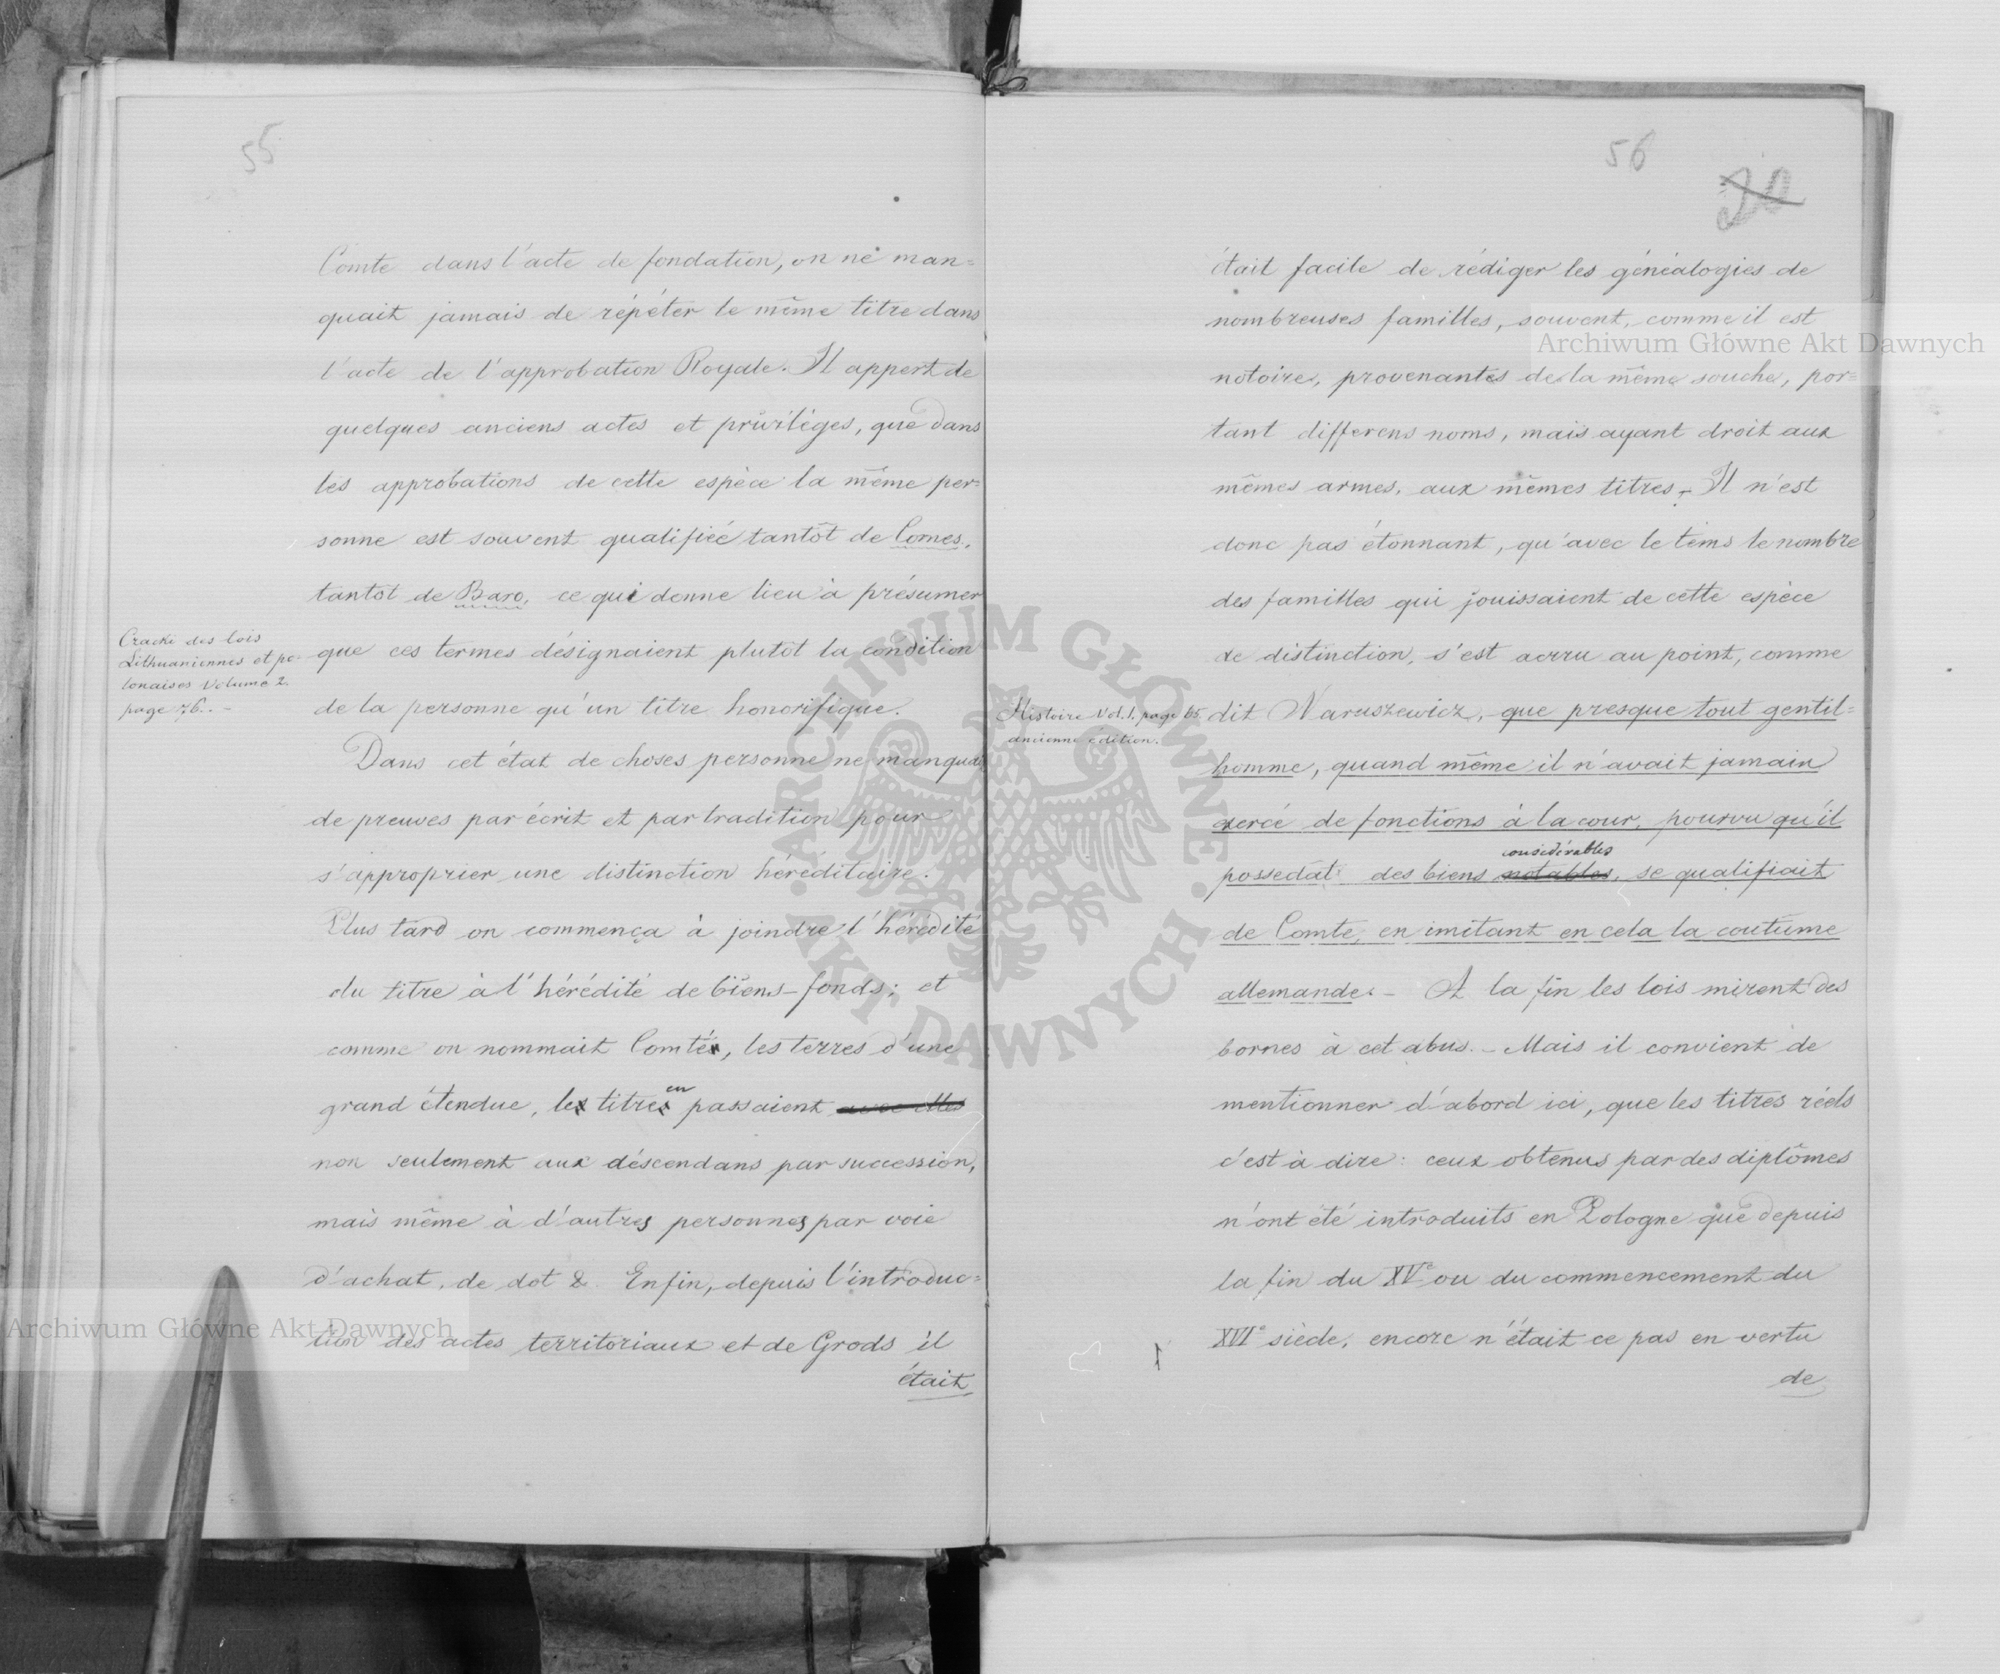 55
Comte dans l'acte de fondation, on ne man=
quait jamais de répéter le même titre dans
l'acte de l'approbation Royale. Il appert de
quelques anciens actes et privilèges, que dans
les approbations de cette espèce la même per=
sonne est souvent qualifiée tantôt de Comes,
tantôt de Baro, ce qui donne lieu à présumer
que ces termes désignaient plutôt la condition
de la personne qu'un titre honorifique.
Czacki des lois
Lithuaniennes et po-
lonaises Volume 2.
page 76. -
Dans cet état de choses personne ne manquait
de preuves par écrit et par tradition pour
s'approprier une distinction héréditaire.
Plus tard on commença à joindre l'hérédité
du titre à l'hérédité de biens-fonds; et
comme on nommait Comtés, les terres d'une
en
grand étendue, les titres passaient avec elles
non seulement aux déscendans par succession,
mais même à d'autres personnes par voie
d'achat, de dot & Enfin, depuis l'introduc=
tion des actes territoriaux et de Grods il
était
56
20
était facile de rédiger les généalogies de
nombreuses familles, souvent, comme il est
notoire, provenantes de la même souche, por=
tant differens noms, mais ayant droit aux
mêmes armes, aux mêmes titres. Il n'est
donc pas étonnant, qu'avec le tems le nombre
des familles qui jouissaient de cette espèce
de distinction, s'est accru au point, comme
dit Naruszewicz, que presque tout gentil=
Histoire Vol. 1, page 65
ancienne édition.
homme, quand même il n'avait jamain
exercé de fonctions à la cour, pourvu qu'il
considérables
possedât des biens notables, se qualifiait
de Comte, en imitant en cela la coutume
allemande. - A la fin les lois mirent des
bornes à cet abus. - Mais il convient de
mentionner d'abord ici, que les titres réels
c'est à dire: ceux obtenus par des diplômes
n'ont été introduits en Pologne que depuis
la fin du XVe ou du commencement du
XVIe siècle, encore n'était ce pas en vertu
de
Archiwum Główne Akt Dawnych
Archiwum Główne Akt Dawnych
ARCHIWUM GŁÓWNE · AKT DAWNYCH ·